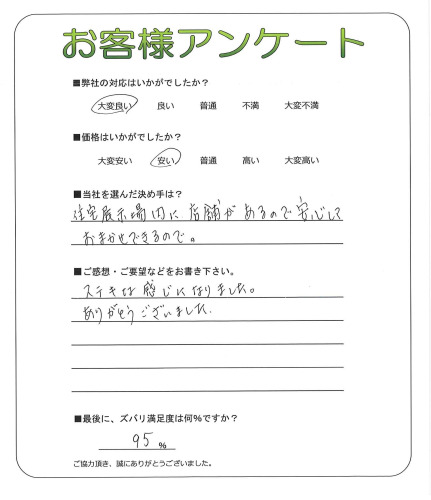 お客様アンケート
■弊社の対応はいかがでしたか？
大変良い 良い 普通 不満 大変不満
■価格はいかがでしたか？
大変安い 安い 普通 高い 大変高い
■当社を選んだ決め手は？
住宅展示場内に店舗があるので安心して
おまかせできるので。
■ご感想・ご要望などをお書き下さい。
ステキな感じになりました。
ありがとうございました.
■最後に、ズバリ満足度は何%ですか？
95 %
ご協力頂き、誠にありがとうございました。